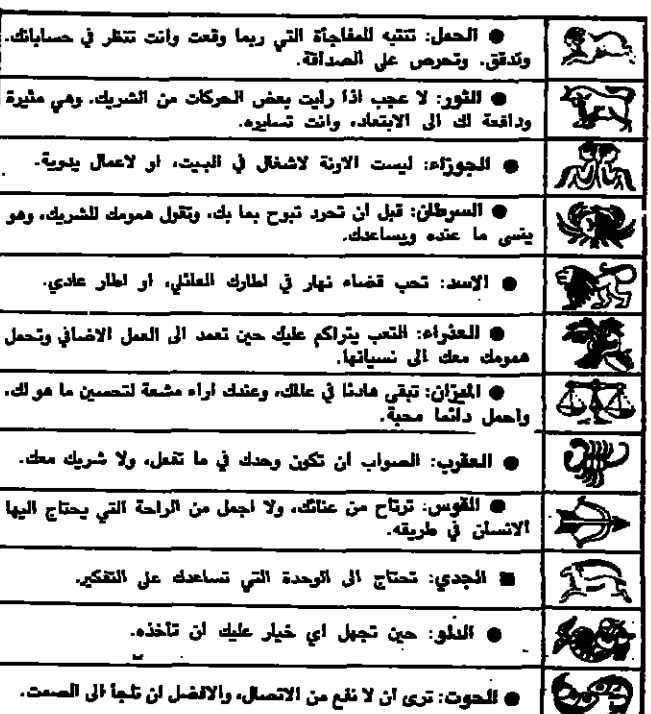 ● الحمل: تتنبه للمفاجأة التي ربما وقعت وانت تنظر في حساباتك.
وتدقق. وتحرص على الصداقة.
● الثور: لا عجب اذا رايت بعض الحركات من الشريك. وهي مثيرة
ودافعة لك الى الابتعاد، وانت تسايره.
● الجوزاء: ليست الاونة لاشغال في البيت، او لاعمال يدوية.
● السرطان: قبل ان تحرد تبوح بما بك، وتقول همومك للشريك، وهو
ينسى ما عنده ويساعدك.
● الاسد: تحب قضاء نهار في اطارك العائلي، او اطار عادي.
● العذراء: التعب يتراكم عليك حين تعمد الى العمل الاضافي وتحمل
همومك معك الى نسيانها.
● الميزان: تبقى هادئا في عالمك، وعندك اراء مشعة لتحسين ما هو لك،
واحمل دائما محبة.
● العقرب: الصواب ان تكون وحدك في ما تفعل، ولا شريك معك.
● القوس: ترتاح من عنائك، ولا اجمل من الراحة التي يحتاج اليها
الانسان في طريقه.
■ الجدي: تحتاج الى الوحدة التي تساعدك على التفكير.
● الدلو: حين تجهل اي خيار عليك ان تأخذه.
● الحوت: ترى ان لا نفع من الاتصال، والافضل ان تلجأ الى الصمت.